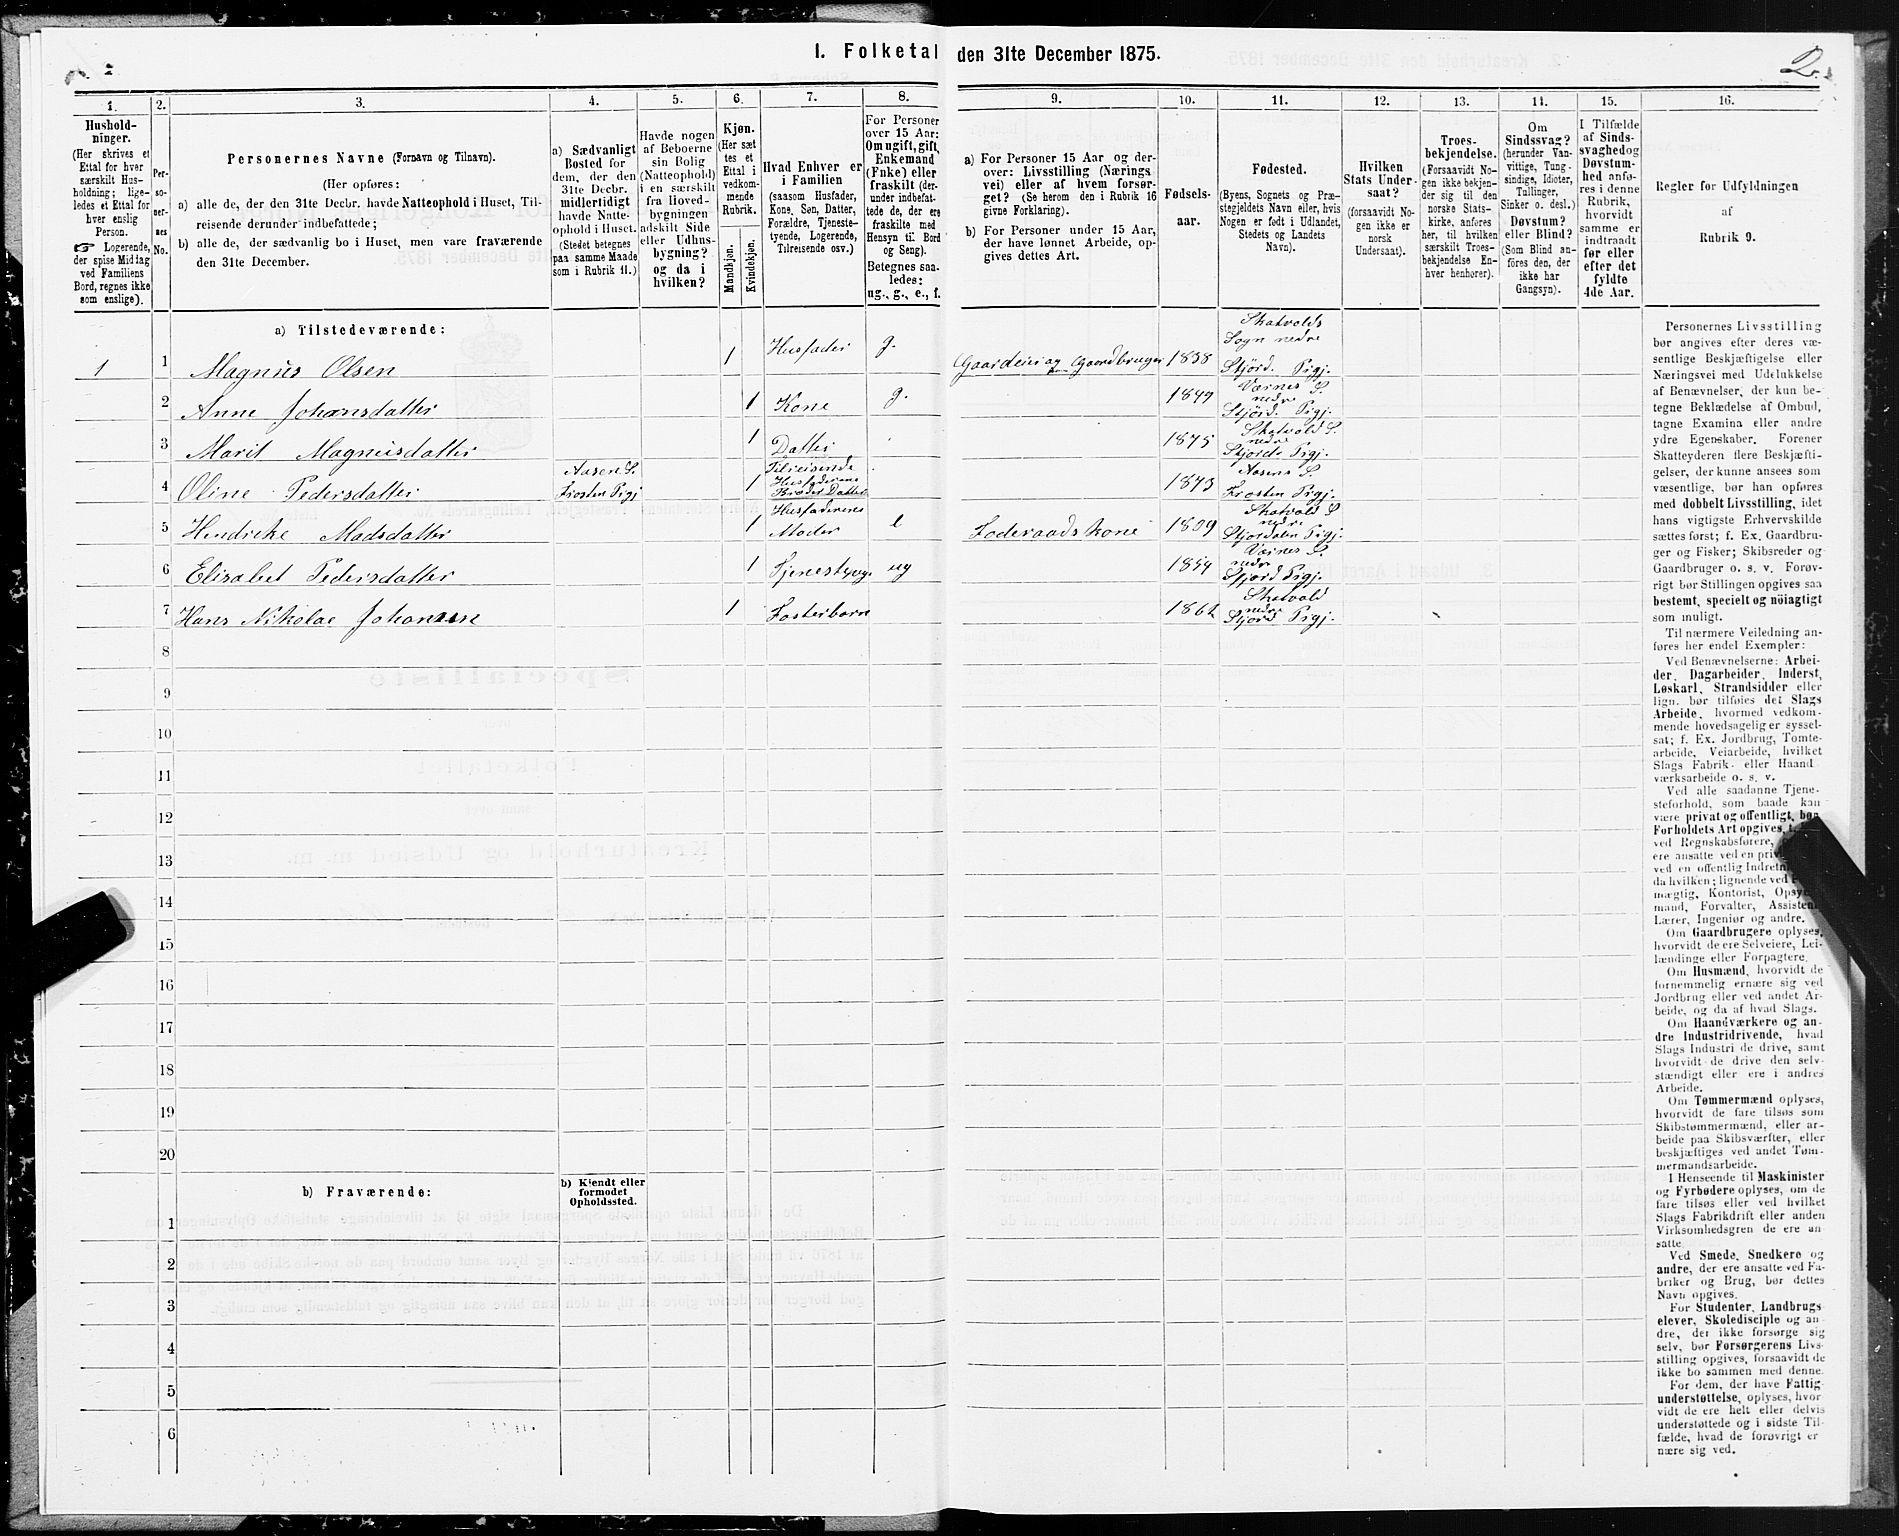 I. Folketal den 31te December 1875.
2.
1. 2. 3. 4. 5. 6. 7. 8. 9. 10. 11. 12. 13. 14. 15. 16.
Hushold-
ninger.
(Her skrives et
Ettal for hver
særskilt Hus-
holdning; lige-
ledes et Ettal for
hver enslig
Person.
☞ Logerende,
der spise Middag
ved Familiens
Bord, regnes ikke
som enslige).
Per-
so-
ner-
nes
No.
Personernes Navne (Fornavn og Tilnavn).
(Her opføres:
a) alle de, der den 31te Decbr. havde Natteophold i Huset, Til-
reisende derunder indbefattede;
b) alle de, der sædvanlig bo i Huset, men vare fraværende
den 31te December.
a) Sædvanligt
Bosted for
dem, der den
31te Decbr.
midlertidigt
havde Natte-
ophold i Huset.
(Stedet betegnes
paa samme Maade
som i Rubrik 11.)
Havde nogen
af Beboerne
sin Bolig
(Natteophold)
i en særskilt
fra Hoved-
bygningen
adskilt Side
eller Udhus-
bygning?
og da i
hvilken?
Kjøn.
(Her sæt-
tes et
Ettal i
vedkom-
mende
Rubrik.
Mandkjøn.
Kvindekjøn.
Hvad Enhver er
i Familien
(saasom Husfader,
Kone, Søn, Datter,
Forældre, Tjeneste-
tyende, Logerende,
Tilreisende osv.)
For Personer
over 15 Aar:
Om ugift, gift,
Enkemand
(Enke) eller
fraskilt (der-
under indbefat-
tede de, der ere
fraskilte med
Hensyn til Bord
og Seng).
Betegnes saa-
ledes:
ug., g., e., f.
a) For Personer 15 Aar og der-
over: Livsstilling (Nærings
vei) eller af hvem forsør-
get? (Se herom den i Rubrik 16
givne Forklaring).
b) For Personer under 15 Aar,
der have lønnet Arbeide, op-
gives dettes Art.
Fødsels-
aar.
Fødested.
(Byens, Sognets og Præ-
stegjeldets Navn eller, hvis
Nogen er født i Udlandet,
Stedets og Landets
Navn).
Hvilken
Stats Under-
saat?
(forsaavidt No-
gen ikke er
norsk
Undersaat).
Troes-
bekjendelse.
(Forsaavidt No-
gen ikke bekjen-
der sig til den
norske Stats-
kirke, anføres
her, til hvilken
særskilt Troes-
bekjendelse En-
hver henhører).
Om
Sindssvag?
(herunder Van-
vittige, Tung-
sindige, Idioter,
Tullinger,
Sinker o. desl.)
Døvstum?
eller Blind?
(Som Blind an-
føres den, der
ikke har
Gangsyn).
I Tilfælde
af Sinds-
svaghed og
Døvstum-
hed anfø-
res i denne
Rubrik,
hvorvidt
samme er
indtraadt
før eller
efter det
fyldte
4de Aar.
Regler for Udfyldningen
af
Rubrik 9.
a) Tilstedeværende:
1 1 Magnus Olsen 1 Husfader g. Gaardeier og Gaardbruger 1838 Skatvolds Sogn nedre Stjörd. Prgj.
2 Anne Johansdatter 1 Kone g. 1849 Værnes S. nedre Stjörd. Prgj.
3 Marit Magnusdatter 1 Datter 1875 Skatvold S. nedre Stjords Prgj.
4 Oline Pedersdatter Aasen S. Frosten Prgj 1 Tilreisende Husfaderens Broder Datter 1873 Aasens S. Frosten Prgj.
5 Hendrikke Madsdatter 1 Husfaderens Moder e Foderaadskone 1809 Skatvold S nedre Stjordalen Prgj.
6 Elisabet Pedersdatter 1 Tjenestepige ug 1854 Værnes S. nedre Stjord Prgj.
7 Hans Nikolai Johansen 1 Fosterbarn 1862 Skatvold nedre Stjord Prgj.
8
9
10
11
12
13
14
15
16
17
18
19
20
b) Fraværende:
b) Kjendt eller
formodet
Opholdssted.
1
2
3
4
5
6
Personernes Livsstilling
bør angives efter deres væ-
sentlige Beskjæftigelse eller
Næringsvei med Udelukkelse
af Benævnelser, der kun be-
tegne Beklædelse af Ombud,
tagne Examina eller andre
ydre Egenskaber. Forener
Skatteyderen flere Beskjæfti-
gelser, der kunne ansees som
væsentlige, bør han opføres
med dobbelt Livsstilling, idet
hans vigtigste Erhvervskilde
sættes først; f. Ex. Gaardbru-
ger og Fisker; Skibsreder og
Gaardbruger o. s. v. Forøv-
rigt bør Stillingen opgives saa
bestemt, specielt og nöiagtigt
som muligt.
Til nærmere Veiledning an-
føres her endel Exempler:
Ved Benævnelserne: Arbei-
der, Dagarbeider, Inderst,
Løskarl, Strandsidder eller
lign. bør tilføies det Slags
Arbeide, hvormed vedkom-
mende hovedsagelig er syssel-
sat; f. Ex. Jordbrug, Tomte-
arbeide, Veiarbeide, hvilket
Slags Fabrik- eller Haand
værksarbeide o. s. v.
Ved alle saadanne Tjene-
steforhold, som baade kan
være privat og offentligt, bør
Forholdets Art opgives,
ved Regnskabsførere,
ere ansatte ved en
ved en offentlig
da hvilken; lignende ved
mægtig, Kontorist,
mand, Forvalter,
Lærer, Ingeniør og andre.
Om Gaardbrugere oplyses,
hvorvidt de ere Selveiere, Lei-
lændinge eller Forpagtere.
Om Husmænd, hvorvidt de
fornemmelig ernære sig ved
Jordbrug eller ved andet Ar-
beide, og da af hvad Slags.
Om Haandværkere og an-
dre Industridrivende, hvad
Slags Industri de drive, samt
hvorvidt de drive den selv-
stændigt eller ere i andres
Arbeide.
Om Tømmermænd oplyses,
hvorvidt de fare tilsøs som
Skibstømmermænd, eller ar-
beide paa Skibsværfter, eller
beskjæftiges ved andet Tøm-
mermandsarbeide.
I Henseende til Maskinister
og Fyrbødere oplyses, om de
fare tilsøs eller ved hvilket
Slags Fabrikdrift eller anden
Virksomhedsgren de ere an-
satte.
Ved Smede, Snedkere og
andre, der ere ansatte ved Fa-
briker og Brug, bør dettes
Navn opgives.
For Studenter, Landbrugs
elever, Skoledisciple og an-
dre, der ikke forsørge sig
selv, bør Forsørgerens Livs-
stilling opgives, forsaavidt de
ikke bo sammen med denne.
For dem, der have Fattig-
understøttelse, oplyses, hvor-
vidt de ere helt eller delvis
understøttede og i sidste Til-
fælde, hvad de forøvrigt er
nære sig ved.